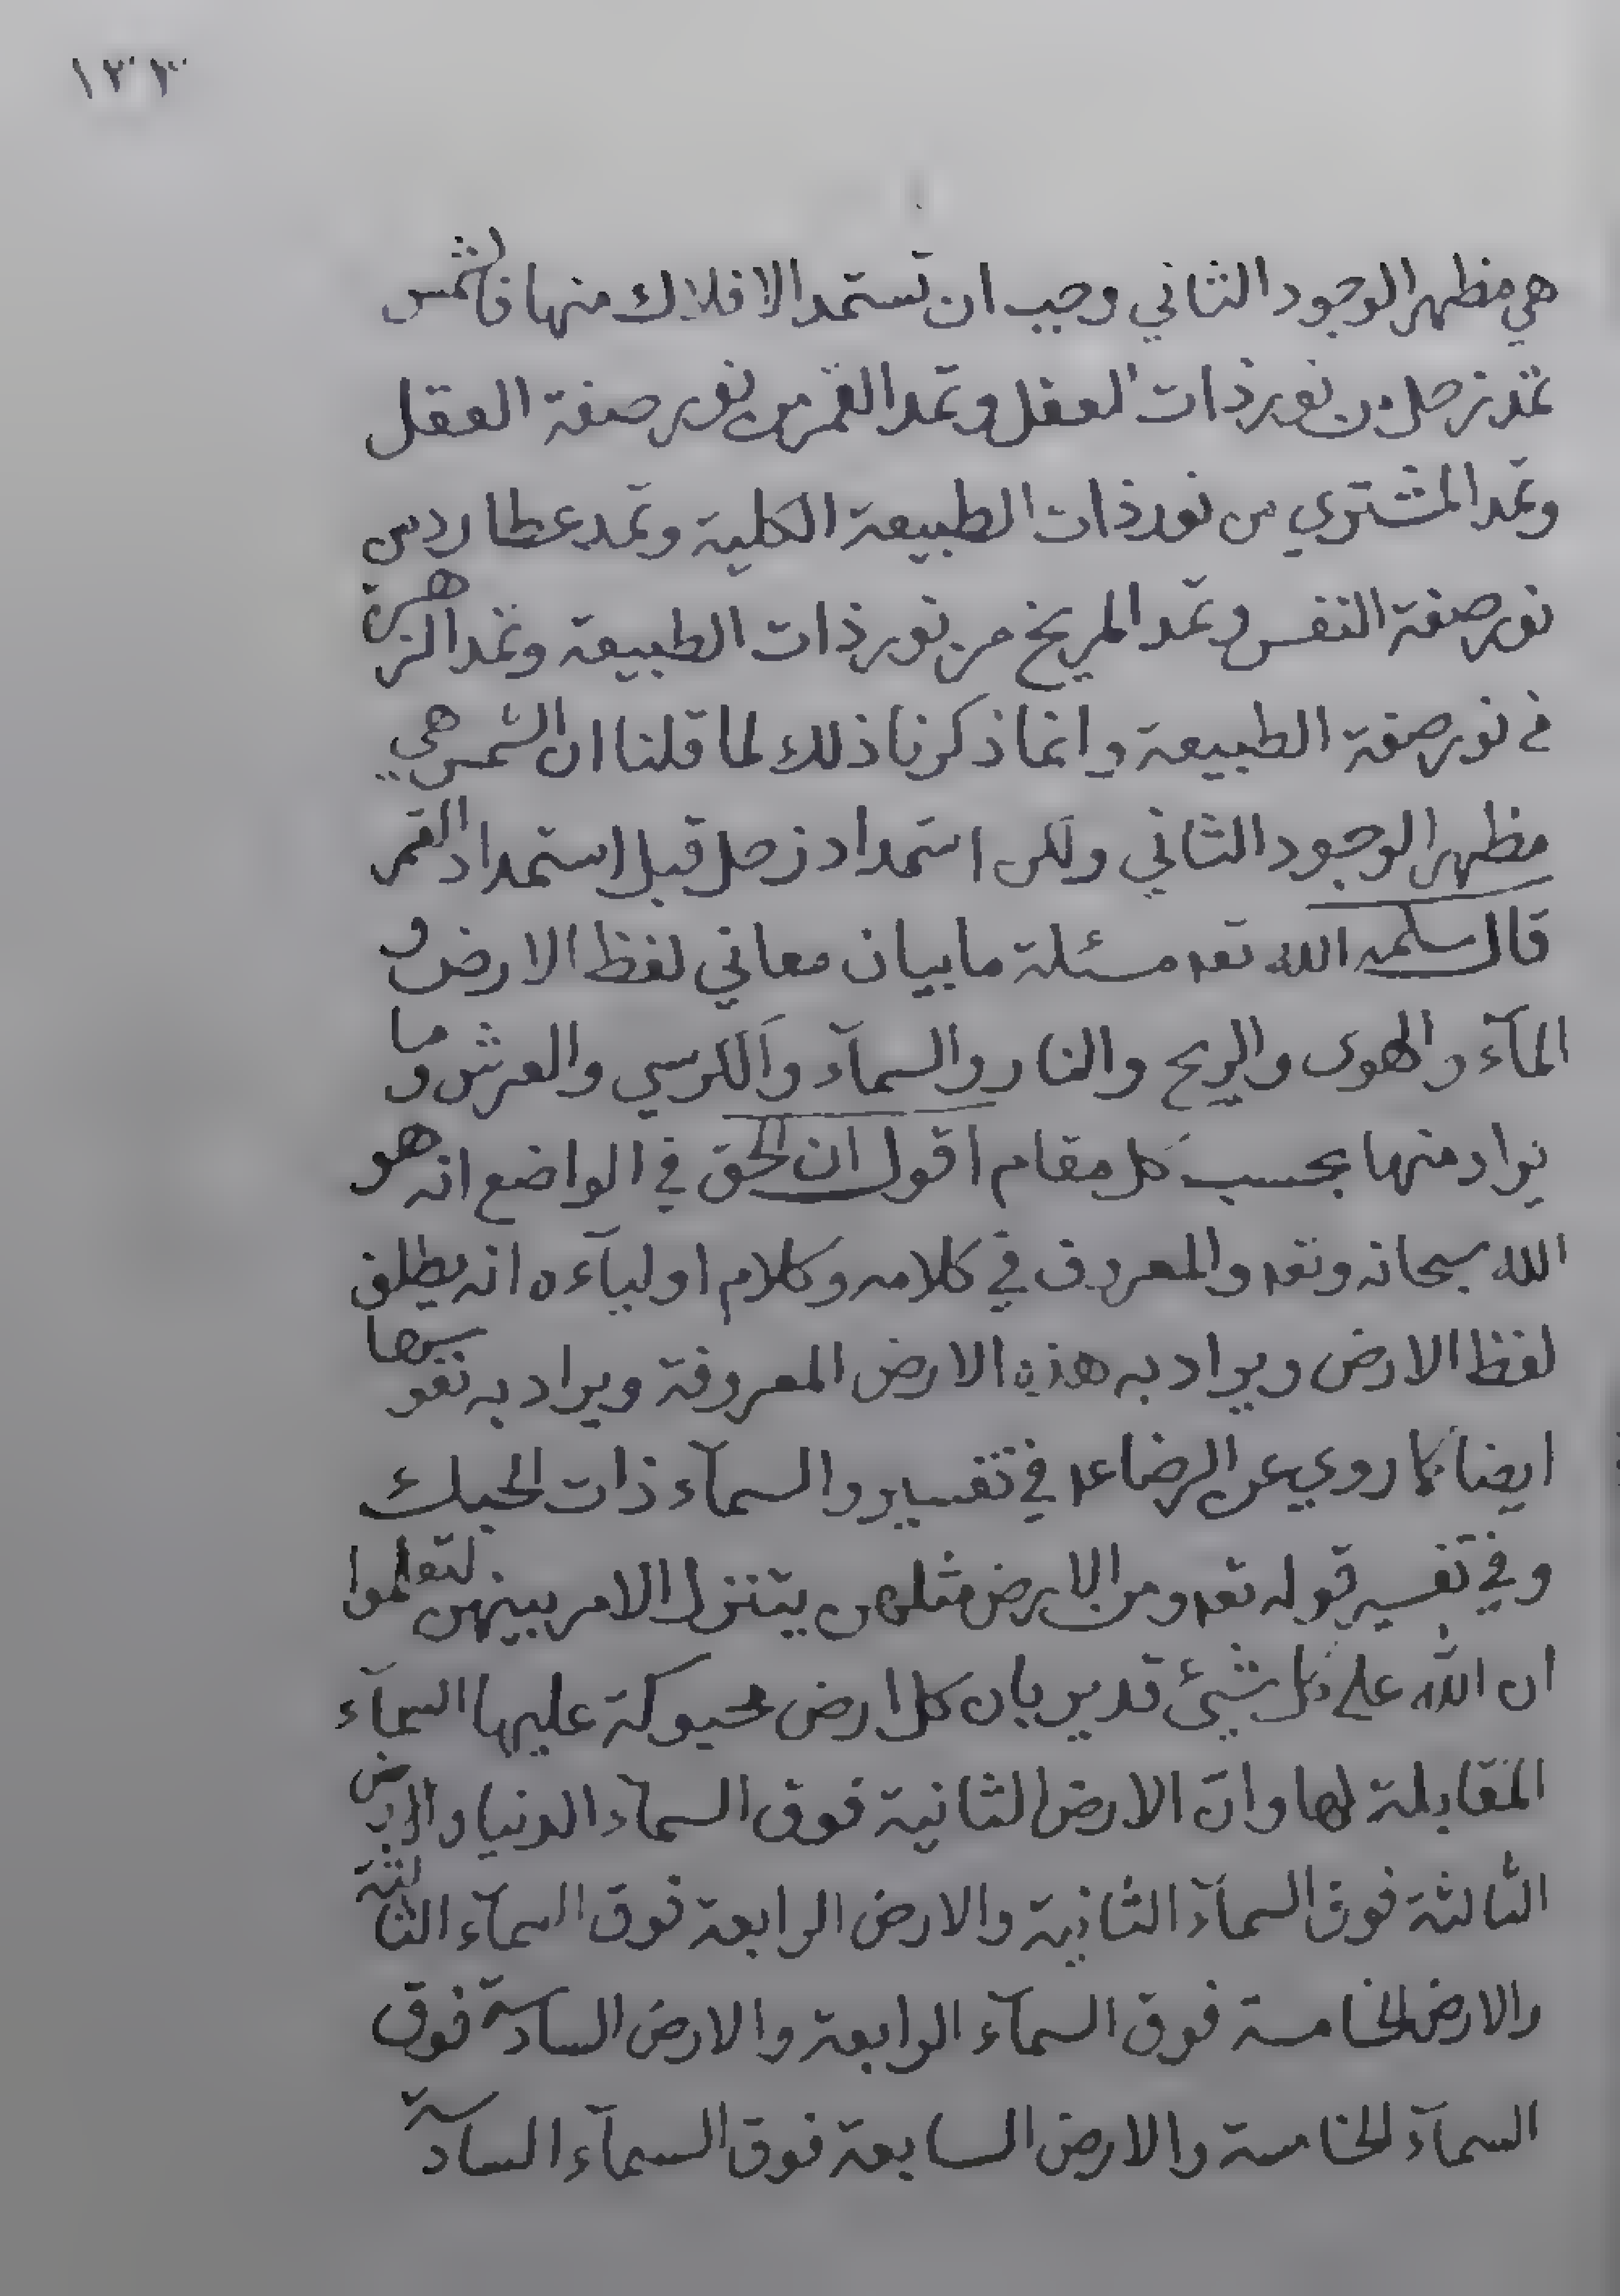 ١٢٣
هي مظهر الوجود الثاني وجب ان تستمد الافلاك منها فالشمس
تمد زحل من نور ذات العقل وتمد القمر من نور صفة العقل
وتمد المشتري من نور ذات الطبيعة الكلية وتمد عطارد من
نور صفة النفس وتمد المريخ من نور ذات الطبيعة وتمد الزهرة
في نور صفة الطبيعة وانما ذكرنا ذلك لما قلنا ان الشمس هي
مظهر الوجود الثاني ولكن استمداد زحل قبل استمداد القمر
قال سلمه الله تعه مسئلة ما بيان معاني لفظ الارض و
المآء والهوى والريح والنار والسمآء والكرسي والعرش وما
يراد منها بحسب كل مقام اقول ان الحق في الواضع انه هو
الله سبحانه وتعه والمعروف في كلامه وكلام اوليآءه انه يطلق
لفظ الارض ويراد به هذه الارض المعروفة ويراد به نفوسها
ايضا كما روي عن الرضا عه في تفسير والسمآء ذات الحبك
وفي تفسير قوله تعه ومن الارض مثلهن يتنزل الامر بينهن لتعلموا
ان الله على كل شيئ قدير بان كل ارض محبوكة عليها السمآء
المقابلة لها وان الارض الثانية فوق السمآء الدنيا والارض
الثالثة فوق السمآء الثانية والارض الرابعة فوق السمآء الثالثة
والارض الخامسة فوق السمآء الرابعة والارض السادسة فوق
السمآء الخامسة والارض السابعة فوق السمآء السادسة